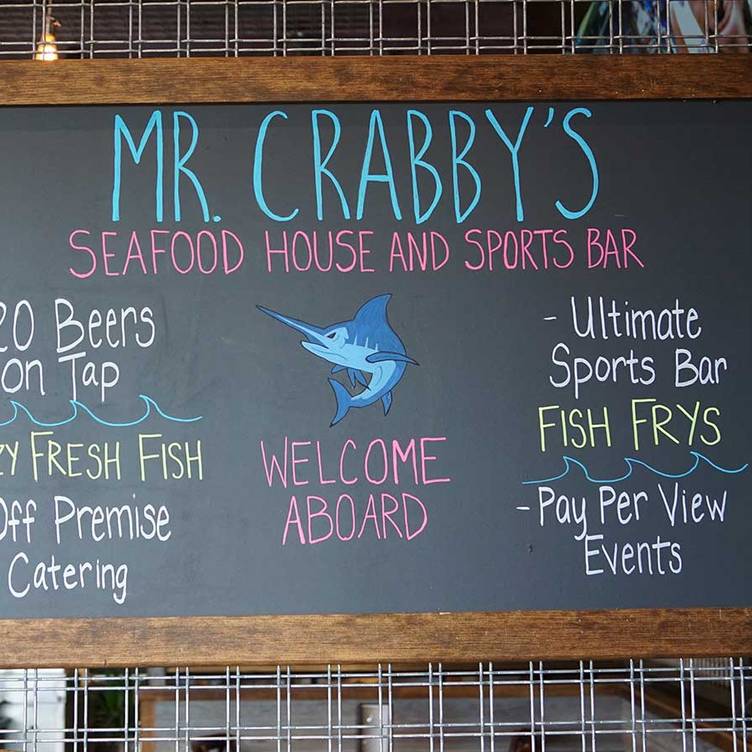 MR. CRABBY'S
SEAFOOD HOUSE AND SPORTS BAR
Beers
on Tap
FRESH FISH
Off Premise
Catering
WELCOME
ABOARD
- Ultimate
Sports Bar
FISH FRYS
- Pay Per View
Events